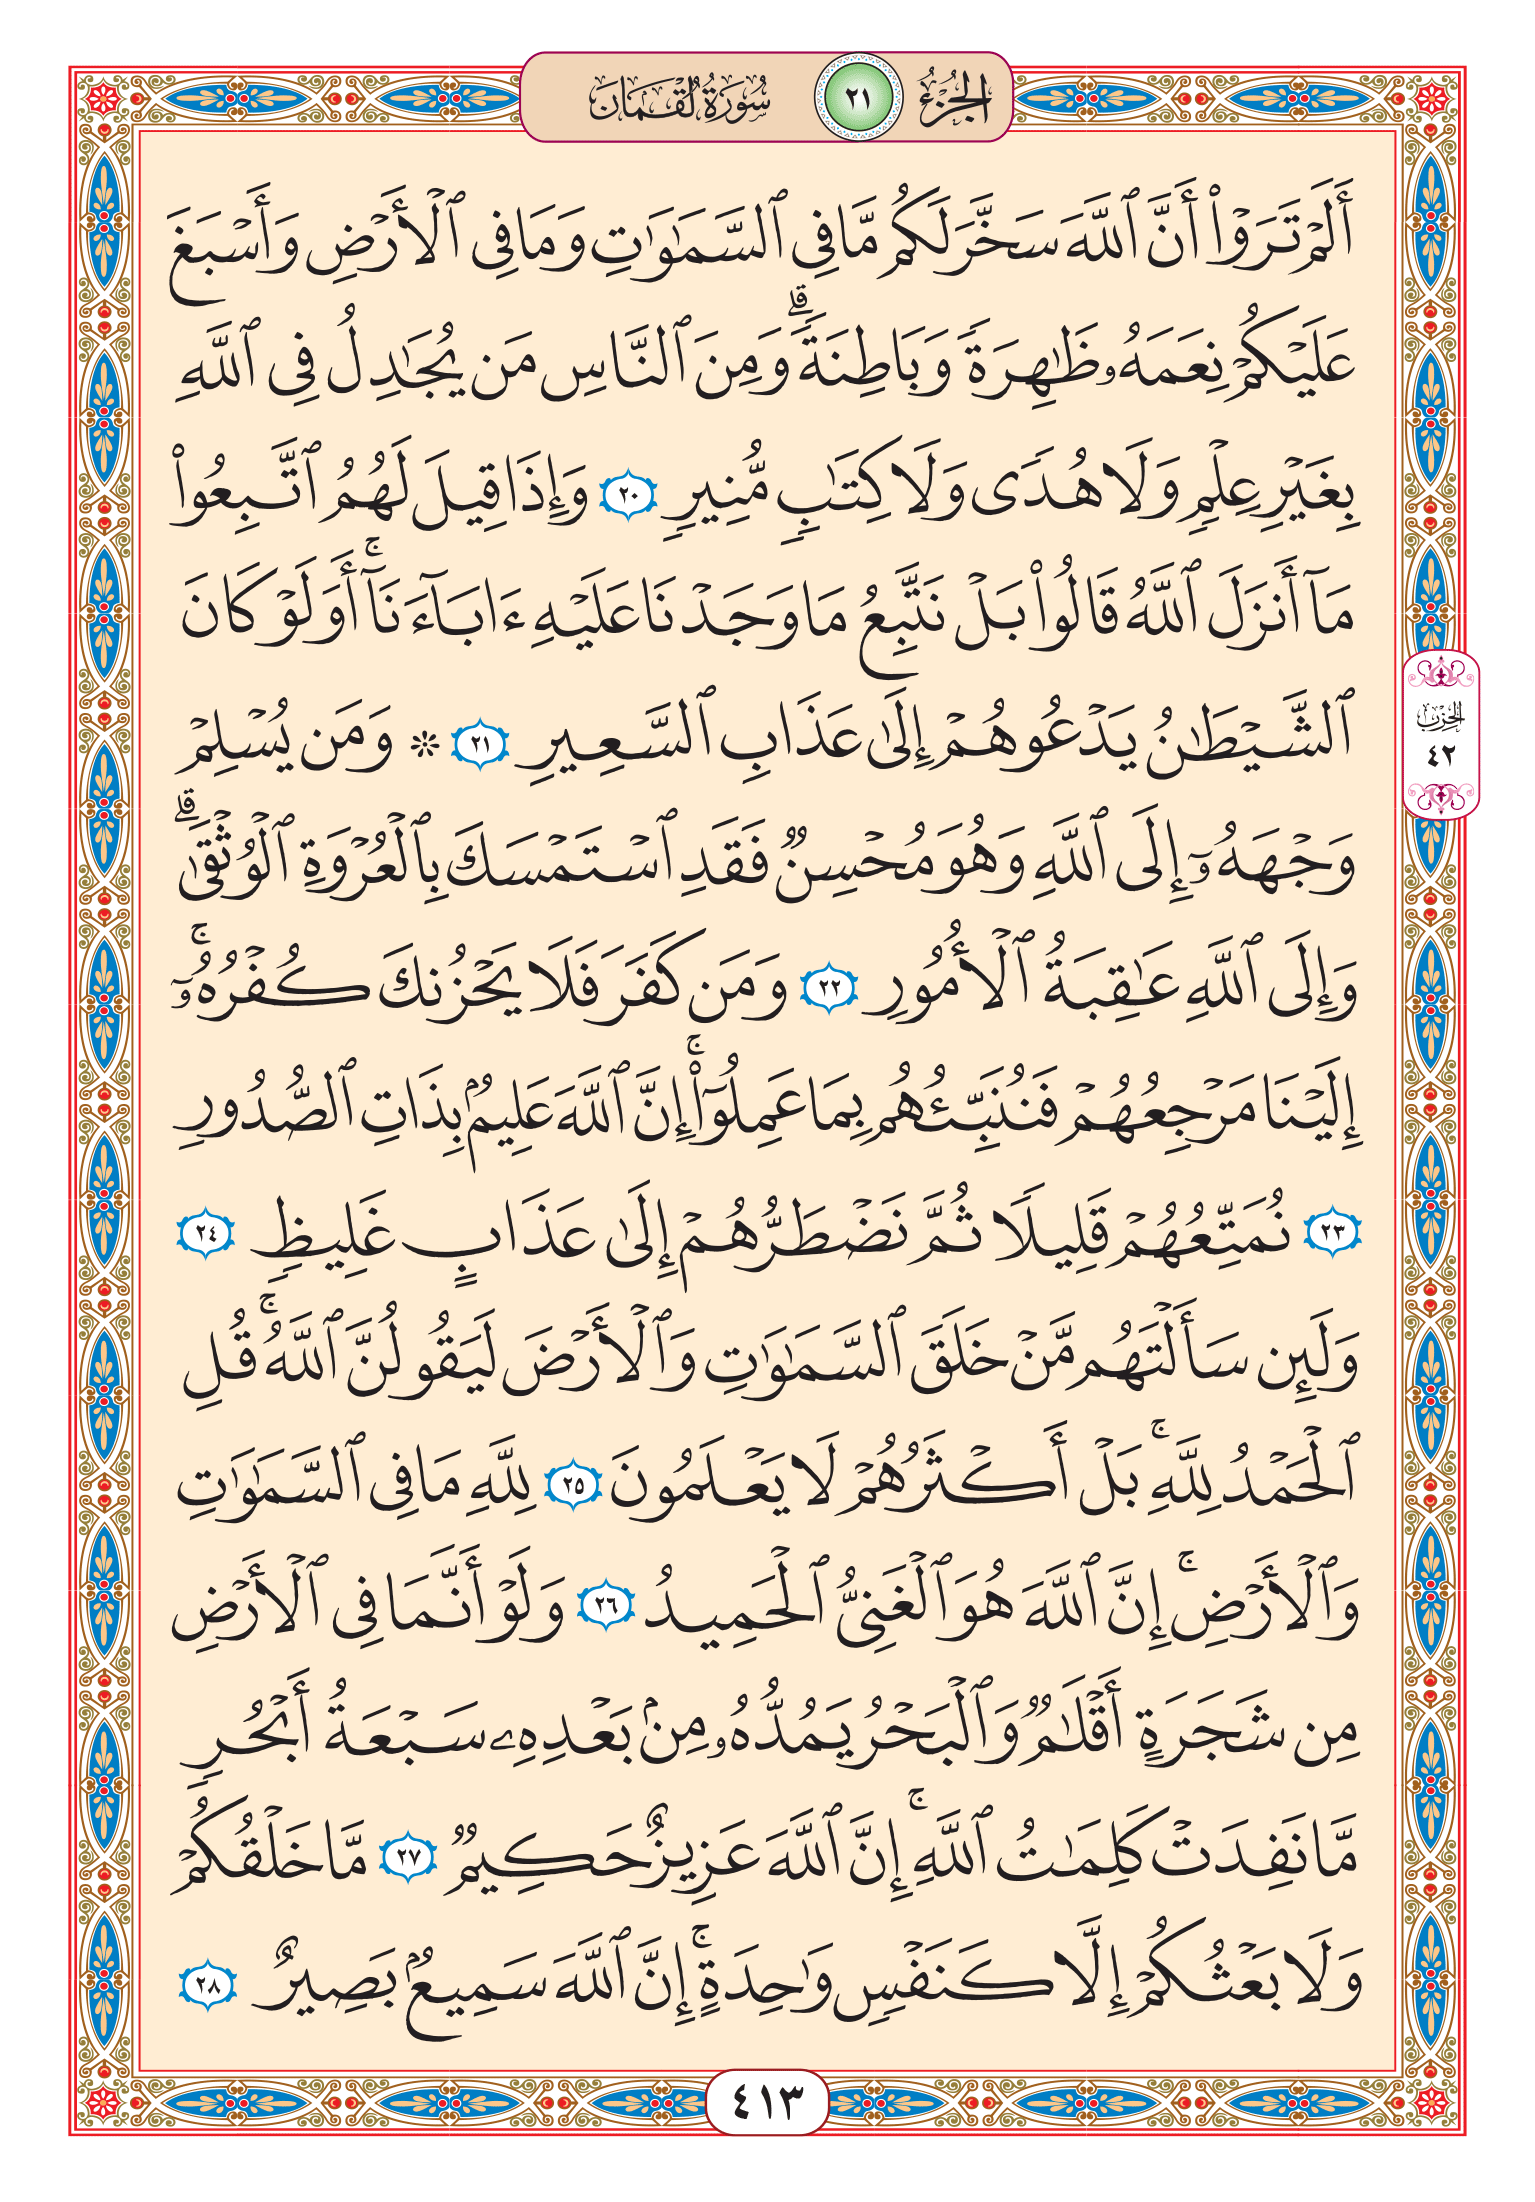 الجزء ٢١ سورة لقمان
أَلَمْ تَرَوْا۟ أَنَّ ٱللَّهَ سَخَّرَ لَكُم مَّا فِى ٱلسَّمَٰوَٰتِ وَمَا فِى ٱلْأَرْضِ وَأَسْبَغَ
عَلَيْكُمْ نِعَمَهُۥ ظَٰهِرَةً وَبَاطِنَةً ۗ وَمِنَ ٱلنَّاسِ مَن يُجَٰدِلُ فِى ٱللَّهِ
بِغَيْرِ عِلْمٍ وَلَا هُدًى وَلَا كِتَٰبٍ مُّنِيرٍ ٢٠ وَإِذَا قِيلَ لَهُمُ ٱتَّبِعُوا۟
مَآ أَنزَلَ ٱللَّهُ قَالُوا۟ بَلْ نَتَّبِعُ مَا وَجَدْنَا عَلَيْهِ ءَابَآءَنَآ ۚ أَوَلَوْ كَانَ
ٱلشَّيْطَٰنُ يَدْعُوهُمْ إِلَىٰ عَذَابِ ٱلسَّعِيرِ ٢١ ۞ وَمَن يُسْلِمْ
الحزب ٤٢
وَجْهَهُۥٓ إِلَى ٱللَّهِ وَهُوَ مُحْسِنٌ فَقَدِ ٱسْتَمْسَكَ بِٱلْعُرْوَةِ ٱلْوُثْقَىٰ ۗ
وَإِلَى ٱللَّهِ عَٰقِبَةُ ٱلْأُمُورِ ٢٢ وَمَن كَفَرَ فَلَا يَحْزُنكَ كُفْرُهُۥٓ ۚ
إِلَيْنَا مَرْجِعُهُمْ فَنُنَبِّئُهُم بِمَا عَمِلُوٓا۟ ۚ إِنَّ ٱللَّهَ عَلِيمٌۢ بِذَاتِ ٱلصُّدُورِ
٢٣ نُمَتِّعُهُمْ قَلِيلًا ثُمَّ نَضْطَرُّهُمْ إِلَىٰ عَذَابٍ غَلِيظٍ ٢٤
وَلَئِن سَأَلْتَهُم مَّنْ خَلَقَ ٱلسَّمَٰوَٰتِ وَٱلْأَرْضَ لَيَقُولُنَّ ٱللَّهُ ۚ قُلِ
ٱلْحَمْدُ لِلَّهِ ۚ بَلْ أَكْثَرُهُمْ لَا يَعْلَمُونَ ٢٥ لِلَّهِ مَا فِى ٱلسَّمَٰوَٰتِ
وَٱلْأَرْضِ ۚ إِنَّ ٱللَّهَ هُوَ ٱلْغَنِىُّ ٱلْحَمِيدُ ٢٦ وَلَوْ أَنَّمَا فِى ٱلْأَرْضِ
مِن شَجَرَةٍ أَقْلَٰمٌ وَٱلْبَحْرُ يَمُدُّهُۥ مِنۢ بَعْدِهِۦ سَبْعَةُ أَبْحُرٍ
مَّا نَفِدَتْ كَلِمَٰتُ ٱللَّهِ ۚ إِنَّ ٱللَّهَ عَزِيزٌ حَكِيمٌ ٢٧ مَّا خَلْقُكُمْ
وَلَا بَعْثُكُمْ إِلَّا كَنَفْسٍ وَٰحِدَةٍ ۚ إِنَّ ٱللَّهَ سَمِيعٌۢ بَصِيرٌ ٢٨
٤١٣